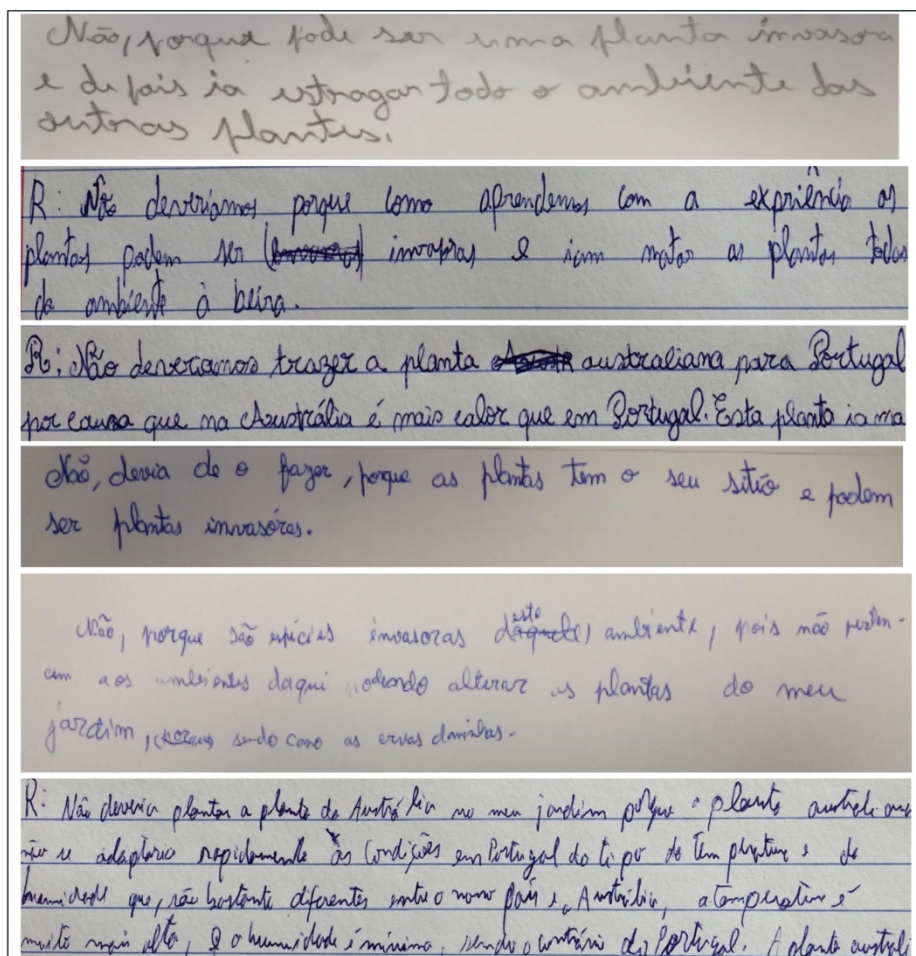 Não, porque pode ser uma planta invasora
e depois ia estragar todo o ambiente das
outras plantes.
R: Não deveriamos porque como aprendemos com a expriência as
plantas podem ser invasoras e iam matar as plantas todas
do ambiente à beira.
R: Não deveriamos trazer a planta australiana para Portugal
por causa que na Austrália é mais calor que em Portugal. Esta planta ia ma
Não, devia de o fazer, porque as plantas tem o seu sitio e podem
ser plantas invasóras.
Não, porque são espécies invasoras deste ambiente, pois não perten-
cem aos ambientes daqui podendo alterar as plantas do meu
jardim, sendo como as ervas daninhas.
R: Não deveria plantar a planta da Austrália no meu jardim porque a planta australiana
não se adaptaria rapidamente às condições em Portugal do tipo de temprature e de
humidade que, são bastante diferentes entre o nosso país e a Austrália, a temperatura é
muito mais alta, e a humidade é mínima, sendo o contrário de Portugal. A planta australi